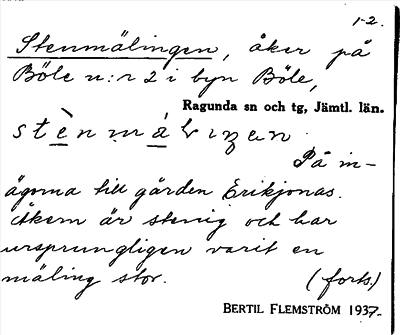 1-2.
Stenmälingen, åker på
Böle n:r 2 i byn Böle,
Ragunda sn och tg, Jämtl. län.
På in-
ägorna till gården Erikjonas.
Åkern är stenig och har
ursprungligen varit en
mäling stor. (forts.)
BERTIL FLEMSTRÖM 1937.